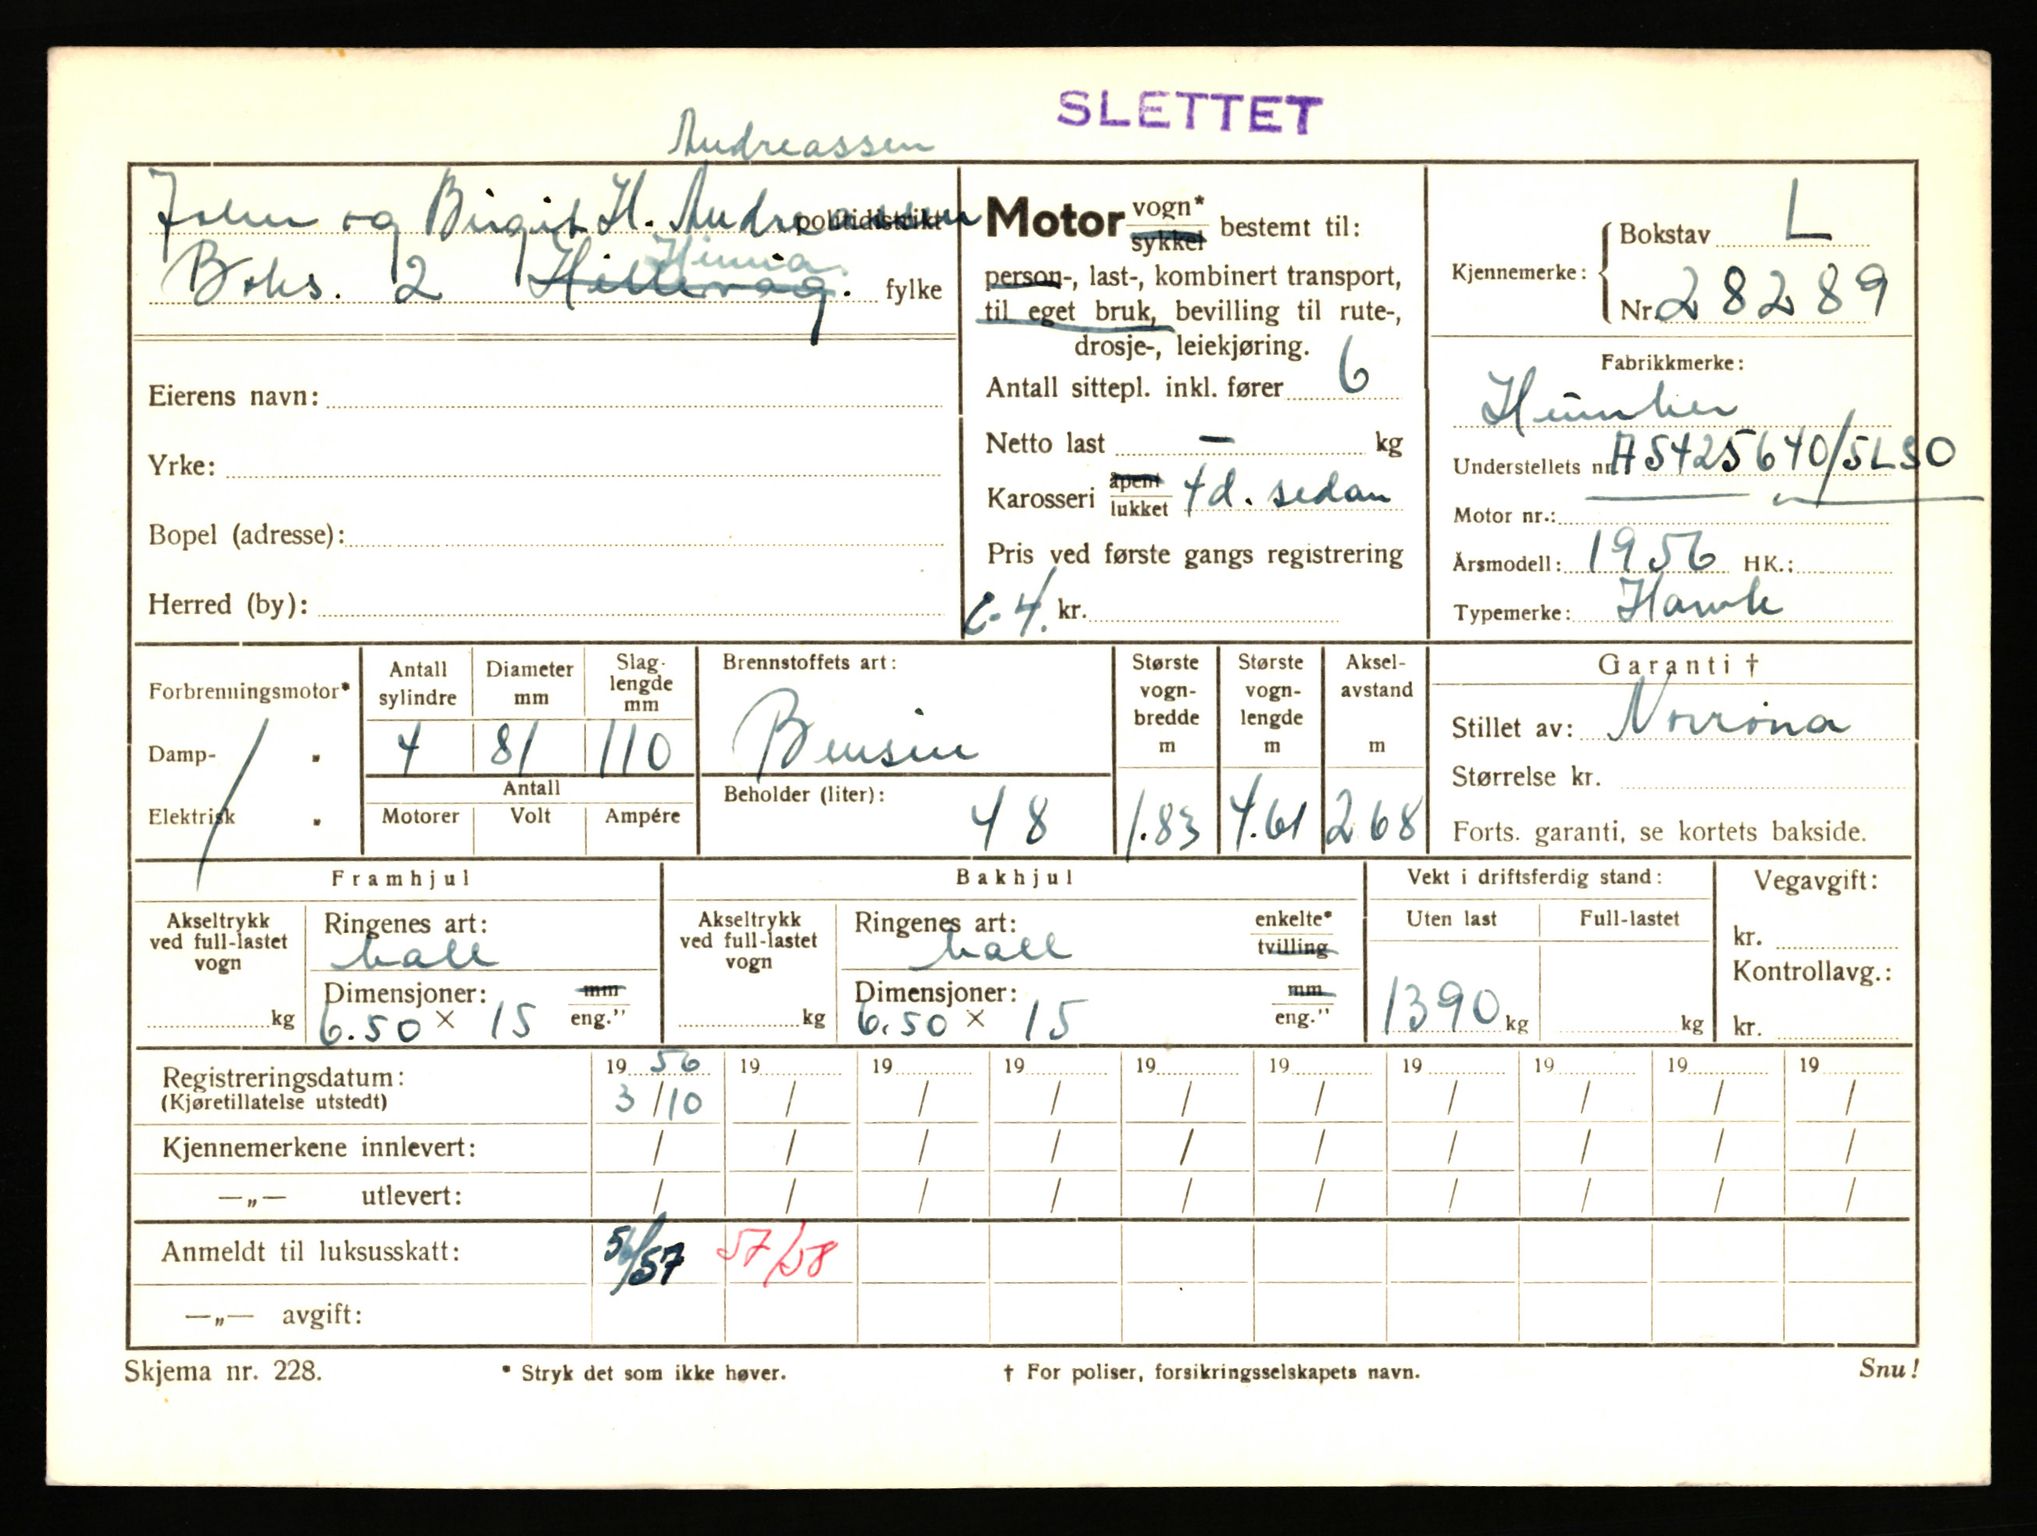 SLETTET
Andreassen
John og Birgit H. Andreassen politidistrikt
Hinna.
Boks. 2 Hillevåg. fylke
Eierens navn:
Yrke:
Bopel (adresse):
Herred (by):
Motor vogn* sykkel bestemt til:
person-, last-, kombinert transport,
til eget bruk, bevilling til rute-,
drosje-, leiekjøring.
Antall sittepl. inkl. fører 6
Netto last — kg
Karosseri åpent lukket 4d. sedan
Pris ved første gangs registrering
C-4. kr.
Kjennemerke: Bokstav L
Nr. 28289
Fabrikkmerke:
Humber
Understellets nr. A5425640/5LSO
Motor nr.:
Årsmodell: 1956 HK.:
Typemerke: Hawk
Forbrenningsmotor*
Damp- "
Elektrisk "
Antall sylindre Diameter mm Slag-lengde mm
4 81 110
Antall
Motorer Volt Ampére
Brennstoffets art:
Bensin
Beholder (liter):
48
Største vogn-bredde m 1.83
Største vogn-lengde m 4.61
Aksel-avstand m 268
Garanti †
Stillet av: Norrøna
Størrelse kr.
Forts. garanti, se kortets bakside.
Framhjul
Akseltrykk ved full-lastet vogn
kg
Ringenes art:
ball
Dimensjoner: mm eng."
6.50 × 15
Bakhjul
Akseltrykk ved full-lastet vogn
kg
Ringenes art: enkelte* tvilling
ball
Dimensjoner: mm eng."
6.50 × 15
Vekt i driftsferdig stand:
Uten last Full-lastet
1390 kg kg
Vegavgift:
kr.
Kontrollavg.:
kr.
Registreringsdatum: 19 56 19 19 19 19 19 19 19 19 19
(Kjøretillatelse utstedt) 3/10 / / / / / / / / /
Kjennemerkene innlevert: / / / / / / / / / /
—„— utlevert: / / / / / / / / / /
Anmeldt til luksusskatt: 56/57 57/58
—„— avgift:
Skjema nr. 228. * Stryk det som ikke høver. † For poliser, forsikringsselskapets navn. Snu!